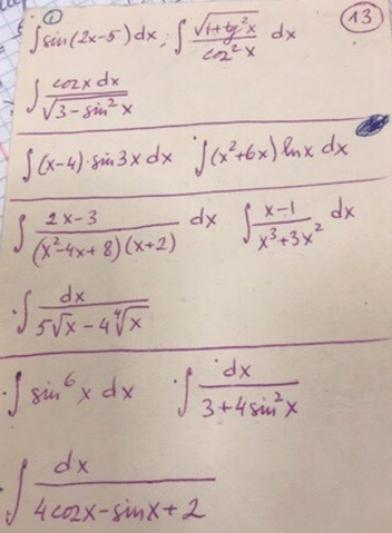 ① 13
∫sin(2x-5)dx; ∫ √(1+tg²x) / cos²x dx
∫ cosx dx / √(3-sin²x)
∫(x-4)·sin3x dx ∫(x²+6x)lnx dx
∫ (2x-3) / ((x²-4x+8)(x+2)) dx ∫ (x-1) / (x³+3x²) dx
∫ dx / (5√x - 4∜x)
∫sin⁶x dx ∫ dx / (3+4sin²x)
∫ dx / (4cosx-sinx+2)